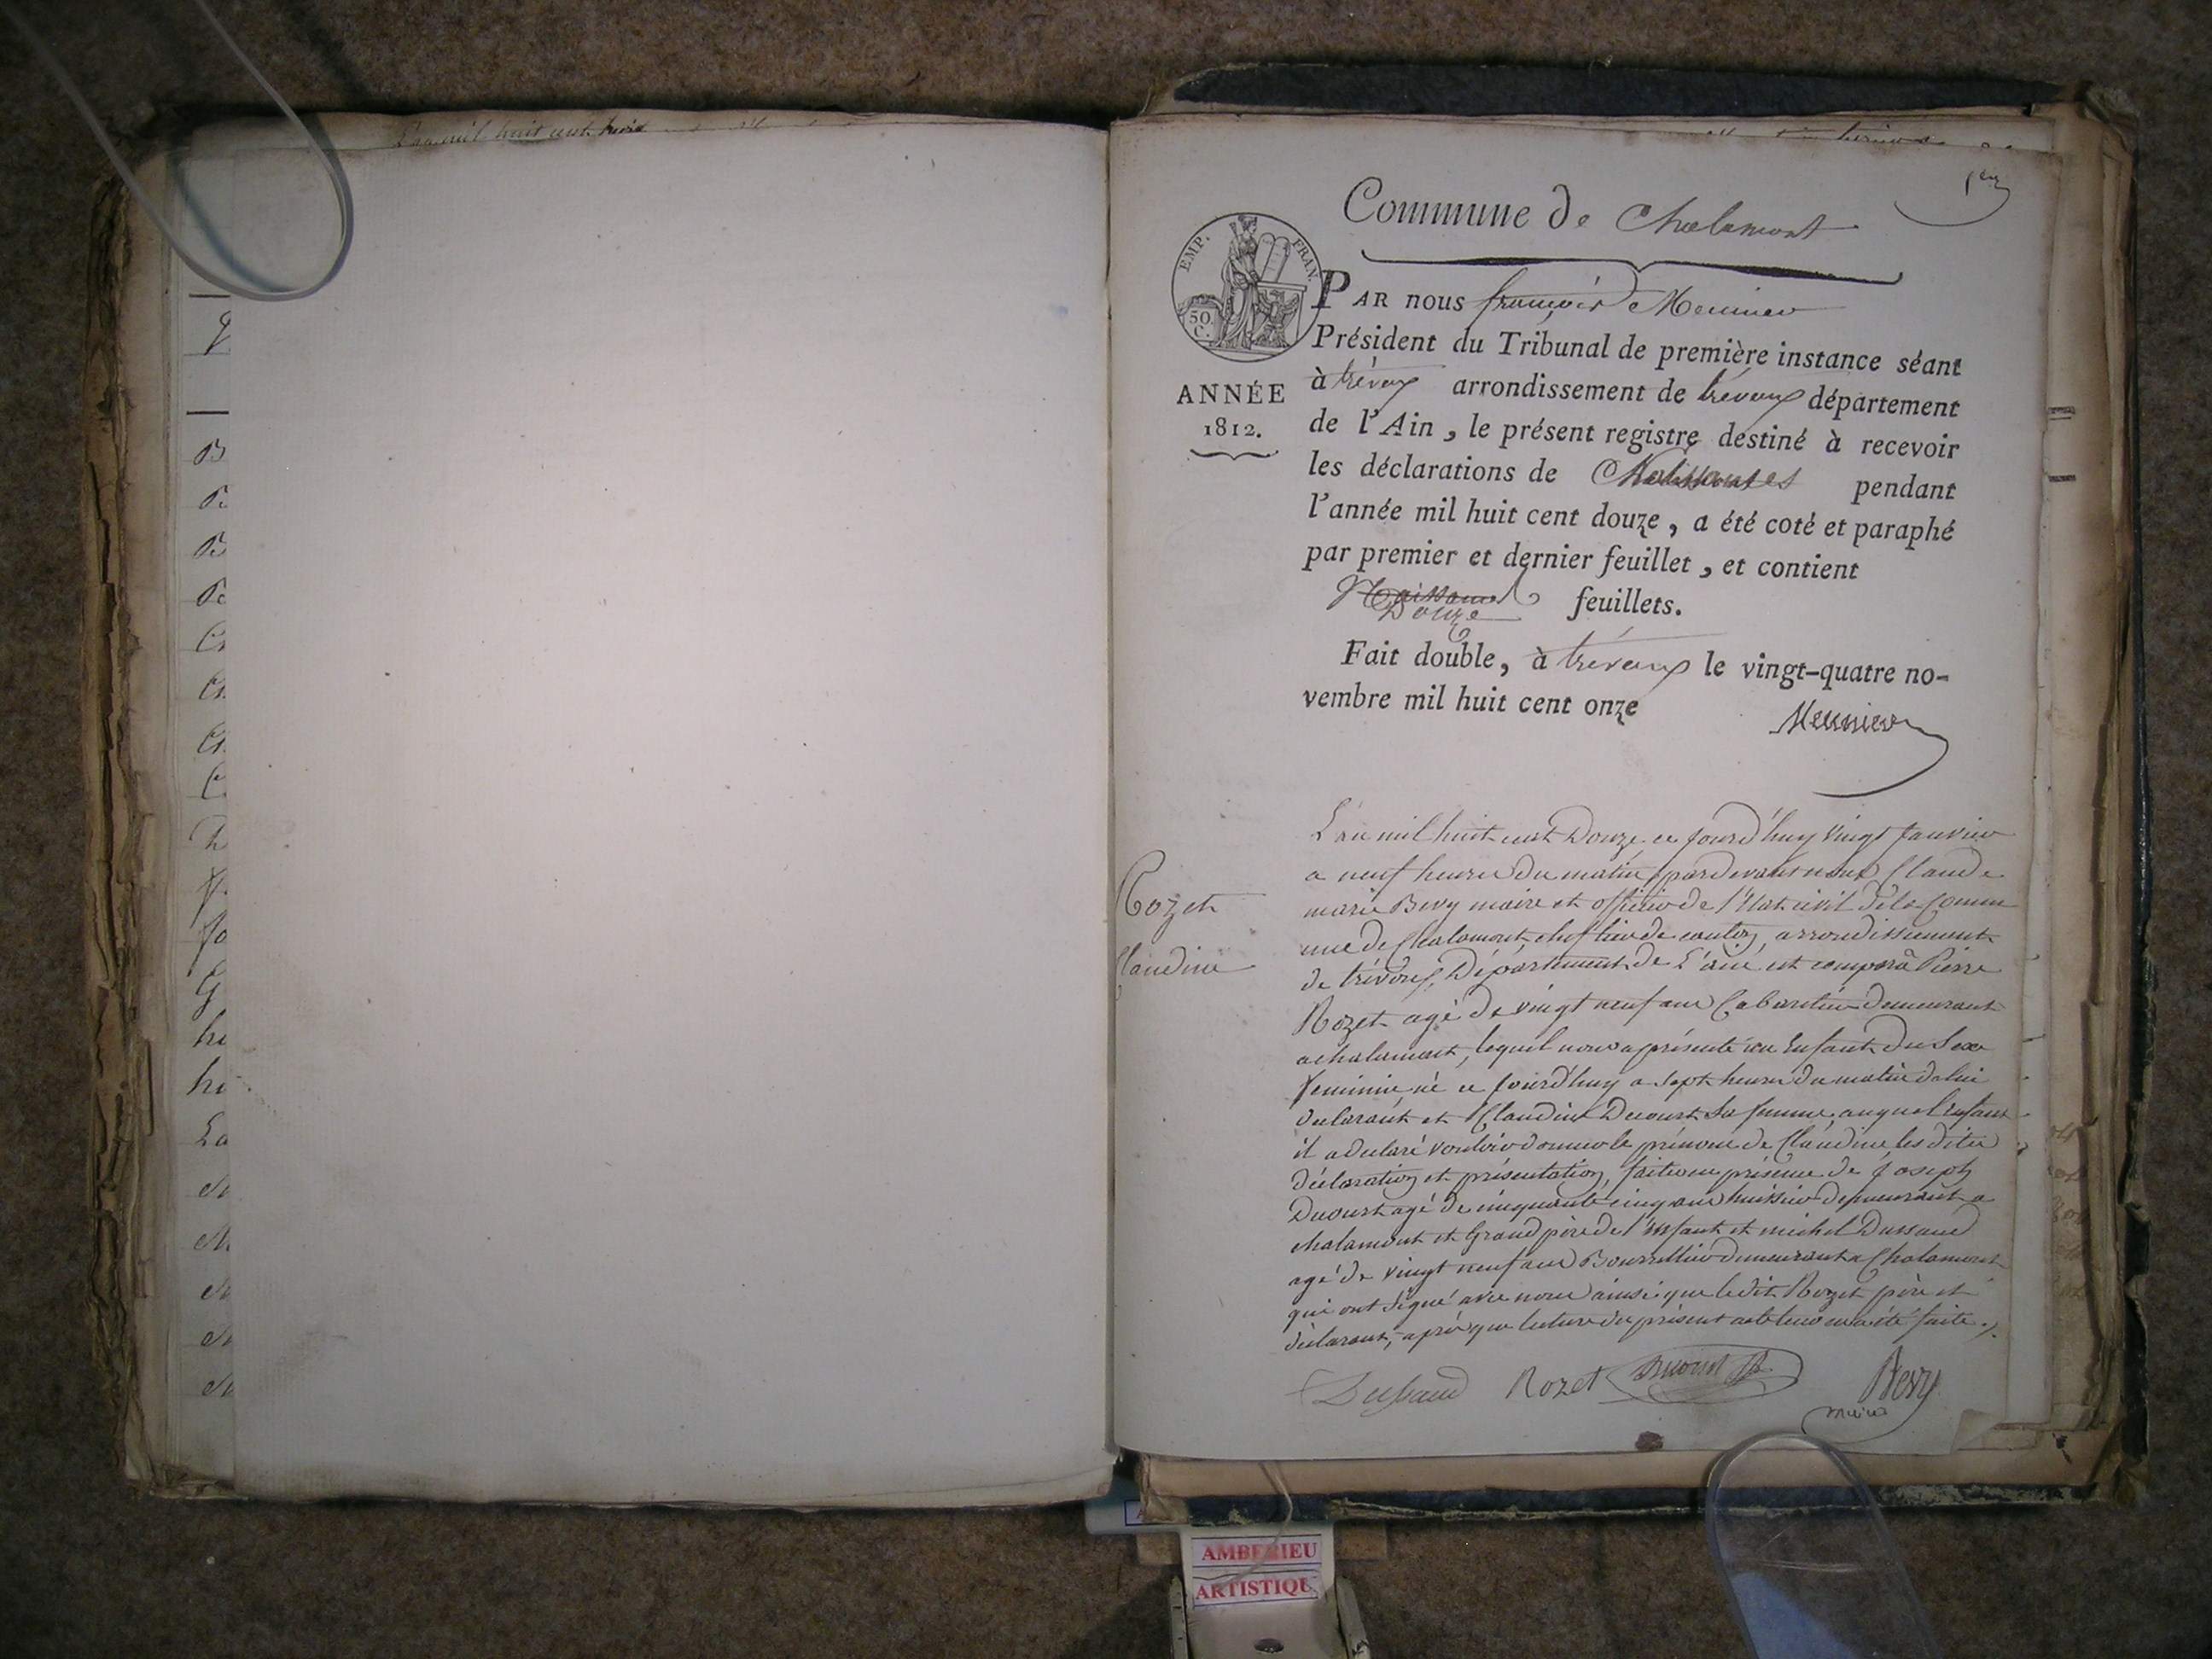 L'an mil huit cent
1er
Commune de Chalamont
EMP. FRAN.
50 C.
PAR nous françois Meunier
Président du Tribunal de première instance séant
à trévoux arrondissement de trévoux département
ANNÉE
1812.
de l'Ain, le présent registre destiné à recevoir
les déclarations de pendant
l'année mil huit cent douze, a été coté et paraphé
par premier et dernier feuillet, et contient
Naissances feuillets.
Douze
Fait double, à trévoux le vingt-quatre no-
vembre mil huit cent onze
Meunier
Rozet
Claudine
L'an mil huit cent Douze ce jourd'huy vingt Janvier
a neuf heures du matin, pardevant nous Claude
marie Bevy maire et officier de l'Etat civil de la Comm
une de Chalamont chef lieu de canton, arrondissement
de trévoux, Département de L'ain est comparû Pierre
Rozet agé de vingt neuf ans Cabaretier demeurant
a chalamont, lequel nous a présenté un Enfant du Sexe
feminin né ce jourd'huy a sept heures du matin de lui
declarant et Claudine Ducurt sa femme, auquel Enfant
il a declaré vouloir donner le prénom de Claudine les dites
déclaration et présentation, faites en présence de Joseph
Ducurt agé de cinquante cinq ans huissier demeurant a
chalamont et Grand père de l'enfant et michel Dussaud
agé de vingt neuf ans Bourrellier demeurant a Chalamont
qui ont signé avec nous ainsi que ledit Rozet père et
déclarant, après que lecture du présent acte leur en a été faite.
Dussaud Rozet Bevy
maire
AMBERIEU
ARTISTIQUE